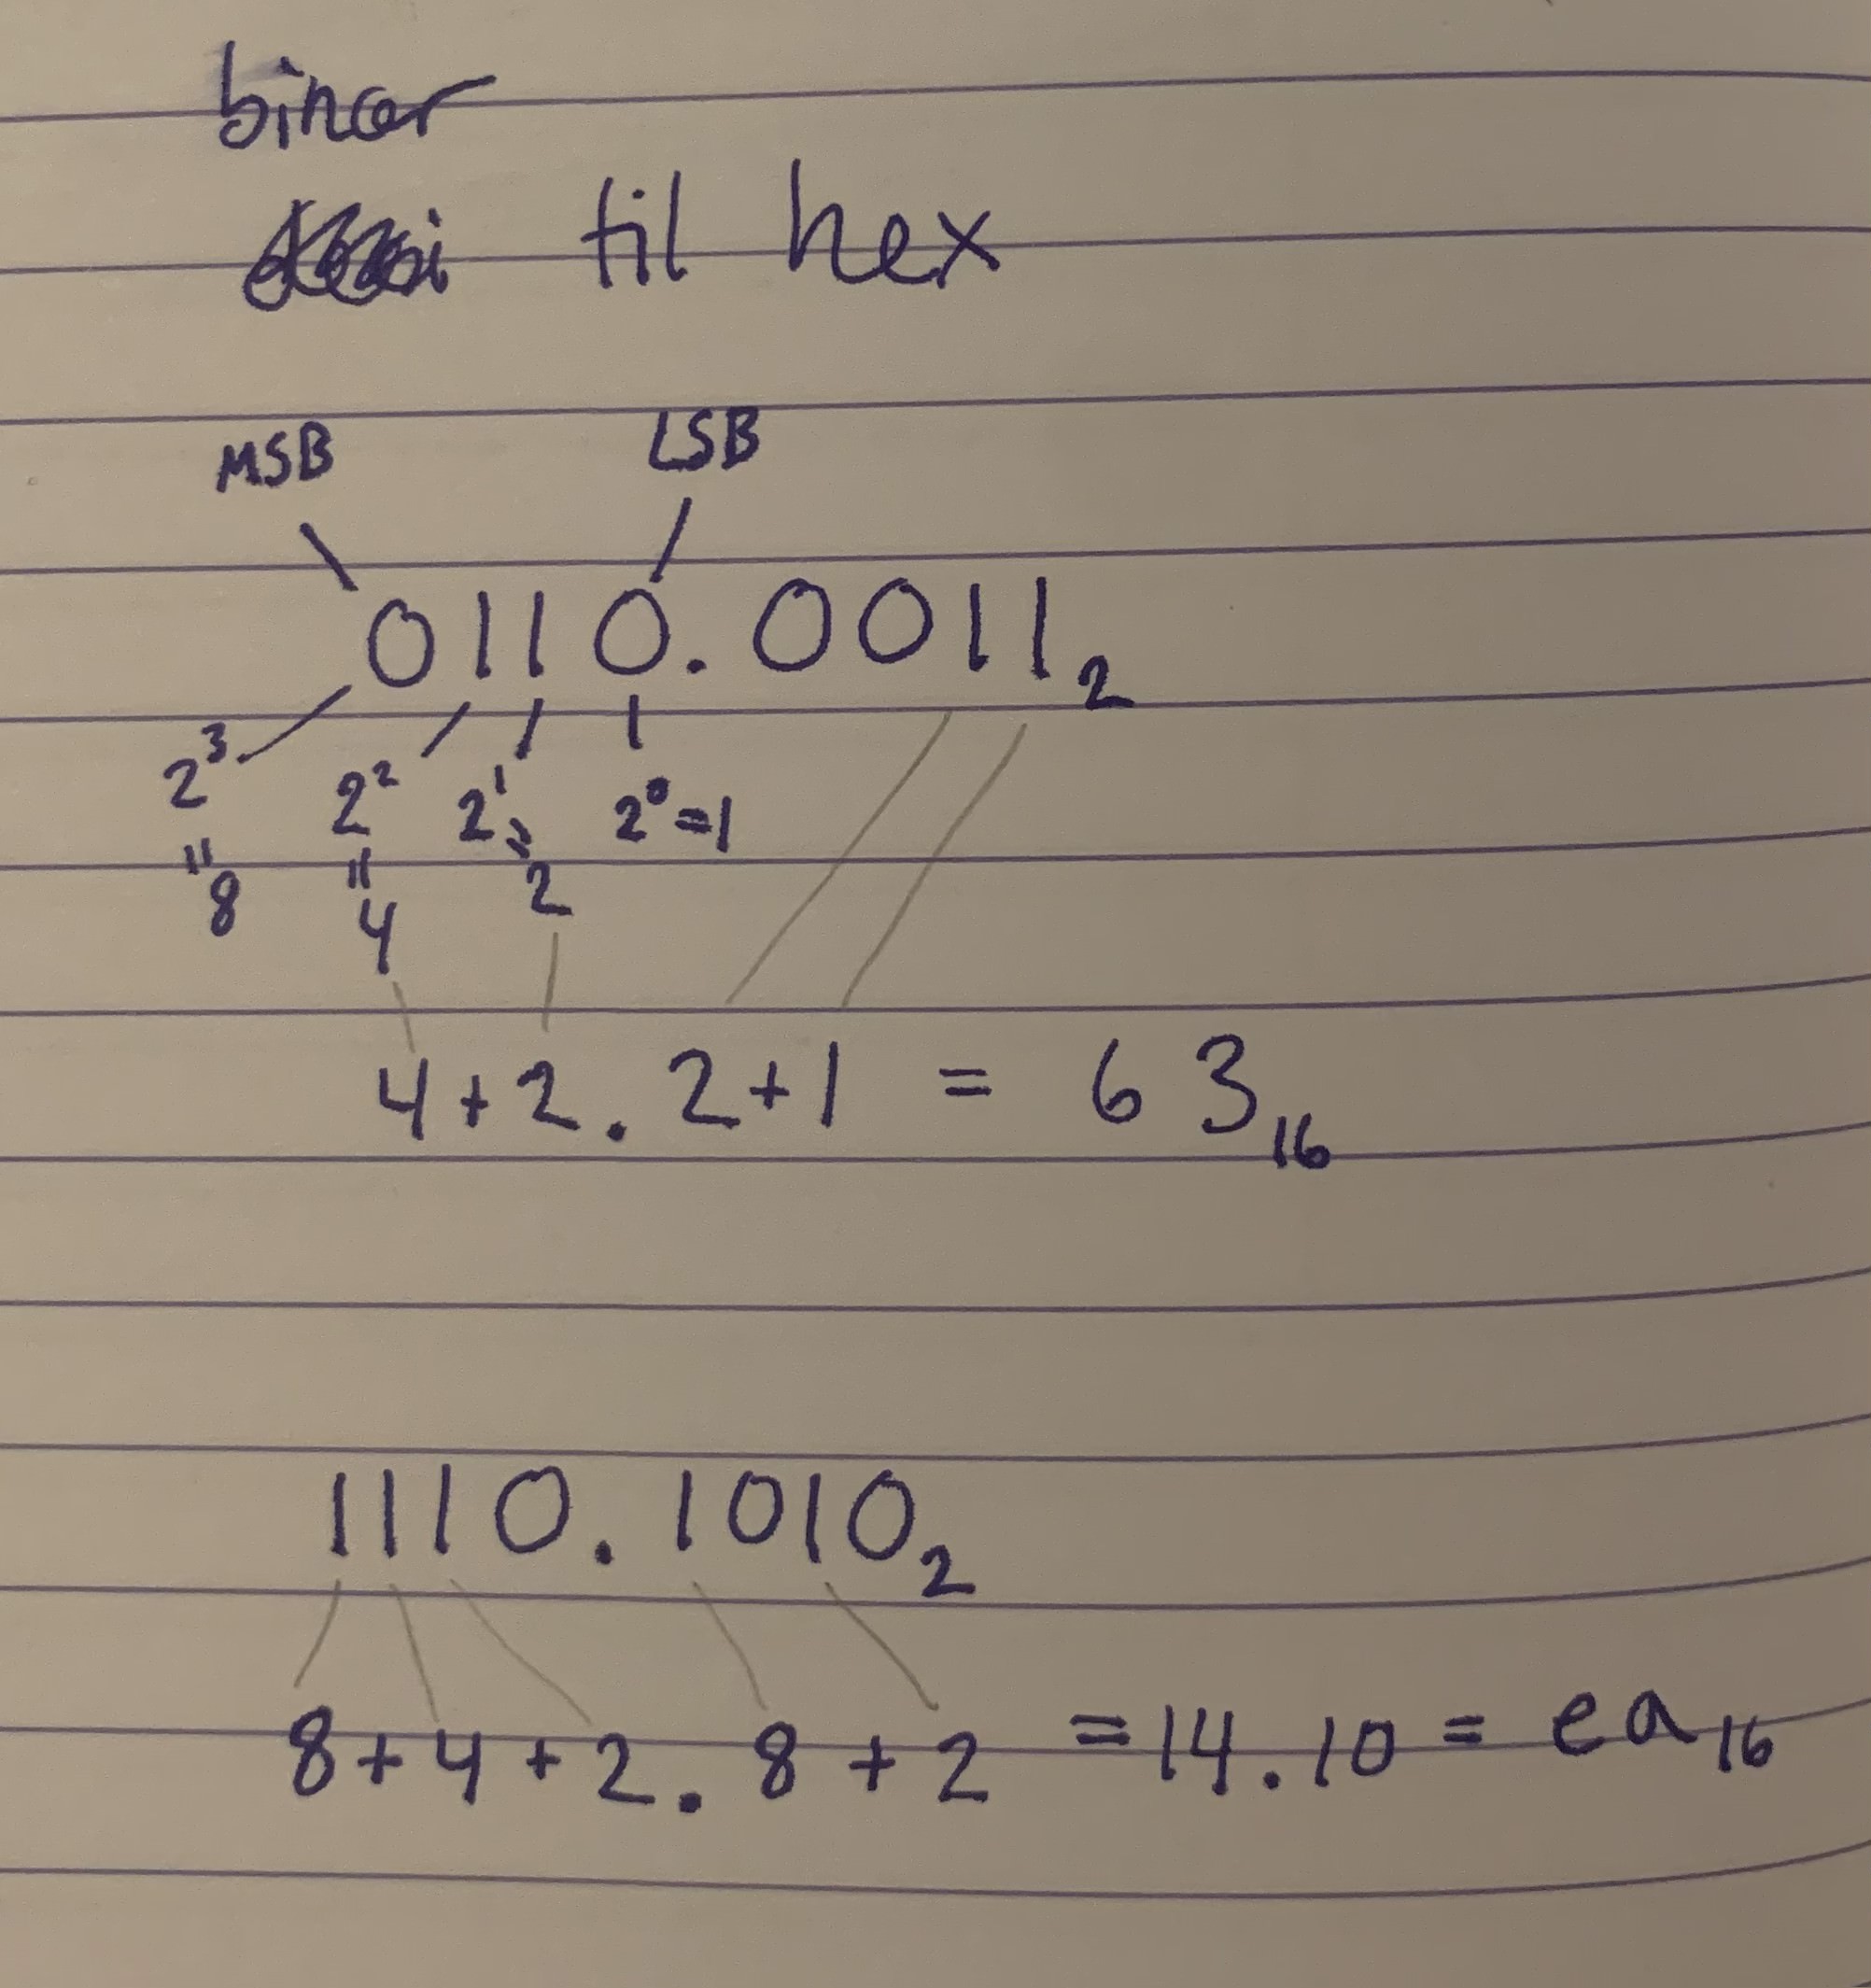 binær
til hex
MSB LSB
0110.0011₂
2³ 2² 2¹ 2⁰=1
= = =
8 4 2
4+2.2+1 = 63₁₆
1110.1010₂
8+4+2.8+2 =14.10 = ea₁₆